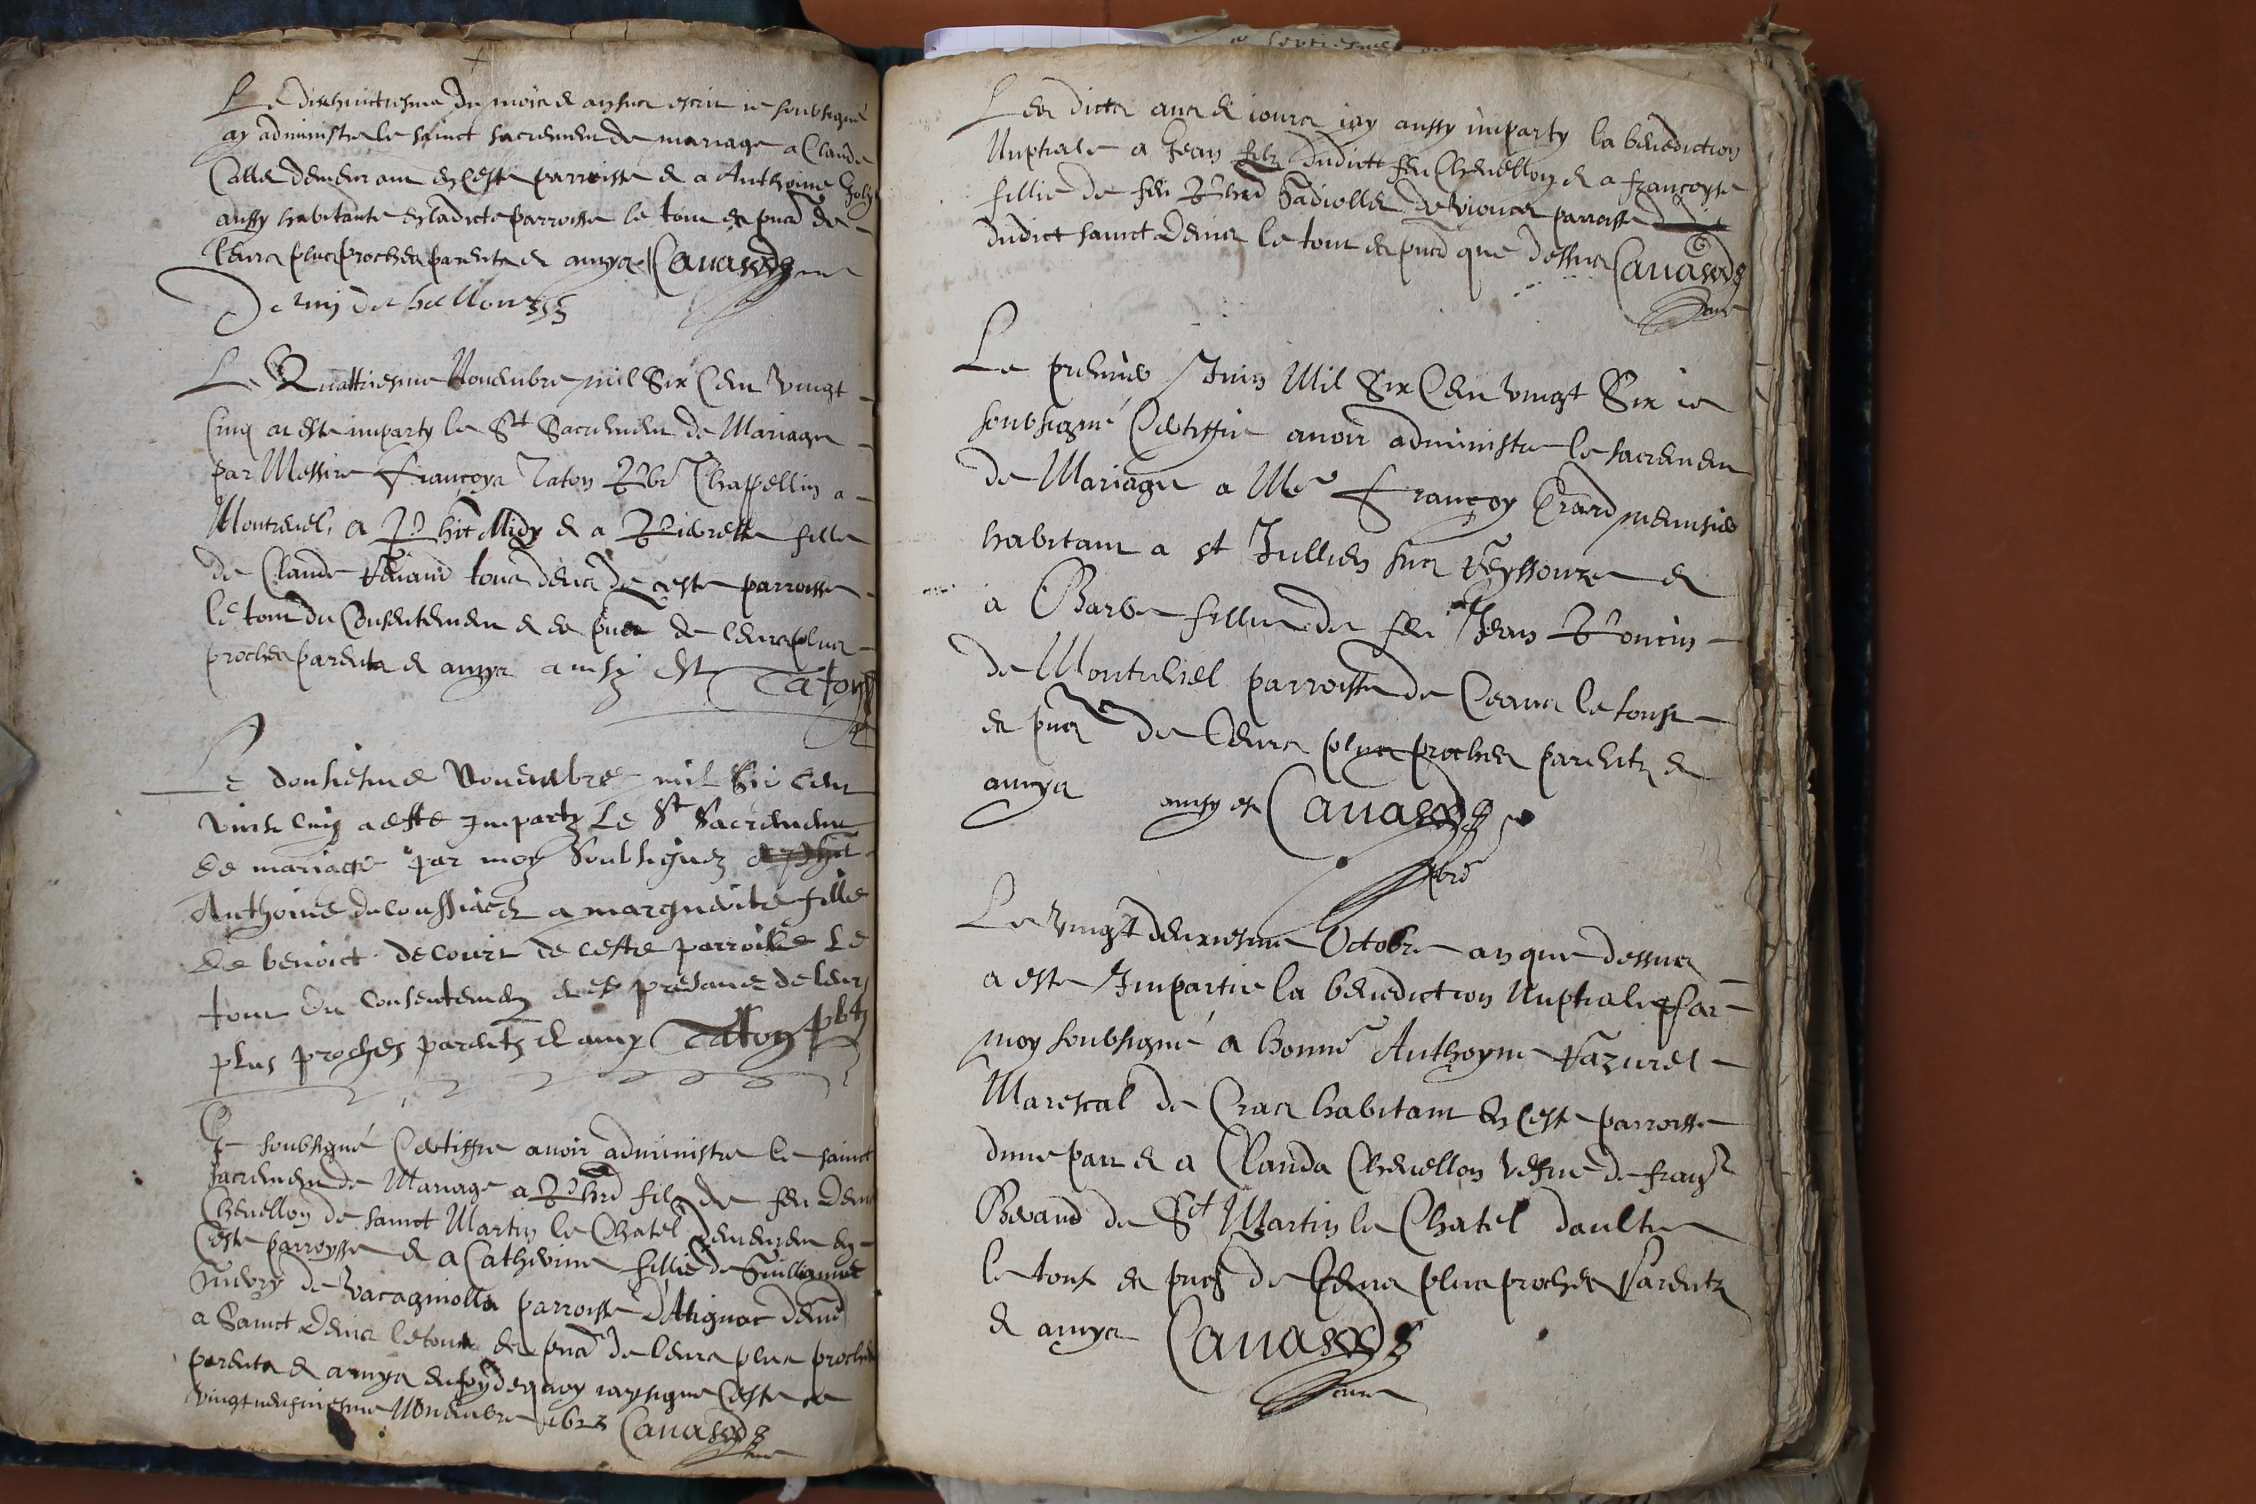 Le dixhuictiesme du mois & an sus escrit ie soubsigné
ay administre le sainct sacrement de mariage a Claude
Callet demeurant en ceste parroisse & a Anthoine
aussy habitante en ladicte parroisse le tout en pnce de
leurs plus proches parents & amys Cauard
Le Quattriesme Nouembre mil Six Cent vingt
Cinq at este imparty le St Sacrement de Mariage
par Messire Françoys Taton Pbre Chappellin a
Montreuel, a Phit Midy & a Pierrette fille
de Claude tous deux de ceste parroisse
le tout du Consentement & en pnce de leurs plus
proches parents & amys ainsy est Taton
Le dousiesme Nouembre mil Six Cent
vinst cinq a este Imparty Le St Sacrement
de mariage par moy Soubsignez
Anthoine & a marguerite fille
de benoict decourt de ceste parroisse Le
tout du Consentement & en presance de leurs
plus proches parentz & amy Taton pbre
Je soubsigné Certiffie auoir administre le sainct
sacrement de Mariage a filz de feu Denis
Cheuellon de sainct Martin le Chatel demeurant en
ceste parroysse & a Catherine fillie de Guillaume
de parroisse d'Atignat
a Sainct Denis le tout en pnce de leurs plus proches
parents & amys en foy dequoy iay signe Ceste ce
Nouembre Cauard
Les dicts ans & iours iay aussy imparty la benediction
Nuptiale a Jean filz dudict feu Cheuellon & a françoyse
fillie de feu parroisse
dudict sainct Denis le tout en pnce que dessus Cauard
Le premier Juin Mil Six Cent vingt Six ie
soubsigné Certiffie auoir administre le sacrement
de Mariage a Me Françoy Erard menusier
habitant a st Jullien sus Reyssouze &
a Barbe fillie de feu Jean Poncin
de Montreuel parroisse de le tout
en pnce de leurs plus proches parentz &
amys ainsy est Cauard
pbre
Le vingt deuxiesme Octobre an que dessus
a este Impartie la benediction Nuptiale par
moy soubsigné a honne Anthoyne
Mareschal de Cras habitant en ceste parroisse
dune part & a Clauda Cheuellon vefue de
de St Martin le Chatel daultre
le tout en pnce de leurs plus proches Parentz
& amys Cauard